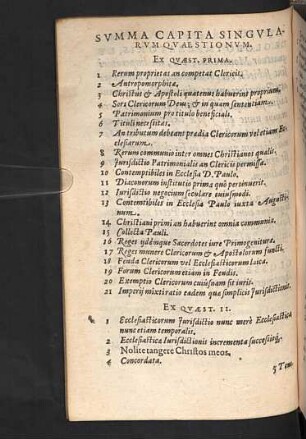 SVMMA CAPITA SINGVLA-
RVM QVAESTIONVM.
EX QVÆST. PRIMA.
1 Rerum proprietas an competat Clericis.
2 Antropomorphitæ.
3 Christus & Apostoli quatenus habuerint proprium.
4 Sors Clericorum Deus, & in quam sententiam.
5 Patrimonium pro titulo beneficiali.
6 Tituli necessitas.
7 An tributum debeant prædia Clericorum vel etiam Ec-
clesiarum.
8 Rerum communio inter omnes Christianos qualis.
9 Iurisdictio Patrimonialis an Clericis permissa.
10 Contemptibiles in Ecclesia D. Paulo.
11 Diaconorum institutio prima quò pertinuerit.
12 Iurisdictio negocium seculare cuiusmodi.
13 Contemtibiles in Ecclesia Paulo iuxta Augusti-
num.
14 Christiani primi an habuerint omnia communia.
15 Collecta Pauli.
16 Reges ijdémque Sacerdotes iure Primogenitura.
17 Reges munere Clericorum & Apostolorum functi.
18 Feuda Clericorum vel Ecclesiasticorum Laica.
19 Forum Clericorum etiam in Feudis.
20 Exemptio Clericorum cuiusnam sit iuris.
21 Imperij mixti ratio eadem quæ simplicis Iurisdictionis.
EX QVÆST. II.
1 Ecclesiasticorum Iurisdictio nunc merè Ecclesiastica
nunc etiam temporalis.
2 Ecclesiasticæ Iurisdictionis incrementa successiúq;
3 Nolite tangere Christos meos.
4 Concordata.
5 Tem-